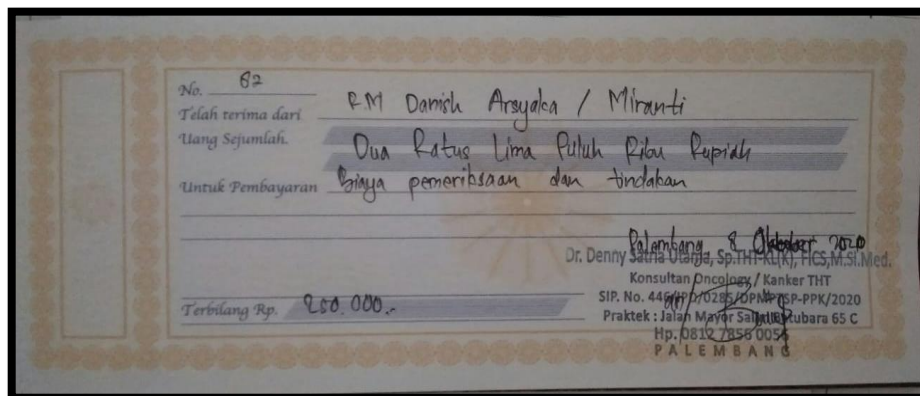 No. 82
Telah terima dari RM Danish Arsyaka / Miranti
Uang Sejumlah. Dua Ratus Lima Puluh Ribu Rupiah
Untuk Pembayaran Biaya pemeriksaan dan tindakan
Palembang 8 Oktober 2020
Dr. Denny Satria Utama, Sp.THT-KL(K), FICS,M.Si.Med.
Konsultan Oncology / Kanker THT
SIP. No. 446/IPD/0285/DPMPTSP-PPK/2020
Terbilang Rp. 250.000.-
Praktek : Jalan Mayor Salim Batubara 65 C
Hp. 0812 7856
PALEMBANG